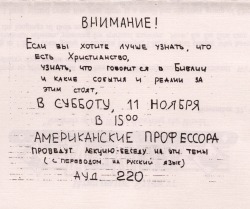 ВНИМАНИЕ!
ЕСЛИ ВЫ ХОТИТЕ ЛУЧШЕ УЗНАТЬ, ЧТО
ЕСТЬ ХРИСТИАНСТВО,
УЗНАТЬ, ЧТО ГОВОРИТСЯ В БИБЛИИ
И КАКИЕ СОБЫТИЯ И РЕАЛИИ ЗА
ЭТИМ СТОЯТ,
В СУББОТУ, 11 НОЯБРЯ
В 15 00
АМЕРИКАНСКИЕ ПРОФЕССОРА
ПРОВЕДУТ ЛЕКЦИЮ-БЕСЕДУ НА ЭТИ ТЕМЫ
(С ПЕРЕВОДОМ НА РУССКИЙ ЯЗЫК)
АУД. 220